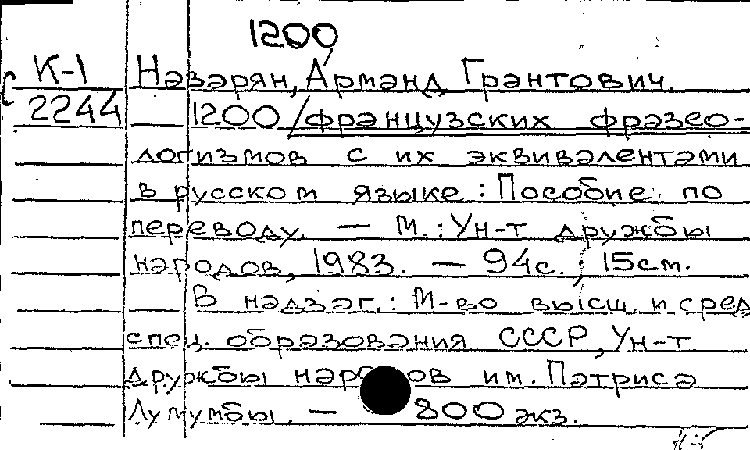 1200
К-1 Назарян, Арманд Грантович.
2244 1200 / французских фразео-
логизмов с их эквивалентами
в русском языке: Пособие по
переводу. — М.: Ун-т дружбы
народов, 1983. — 94с.; 15см.
В надзаг.: М-во высш. и сред.
спец. образования СССР, Ун-т
дружбы народов им. Патриса
Лумумбы. — 800 экз.